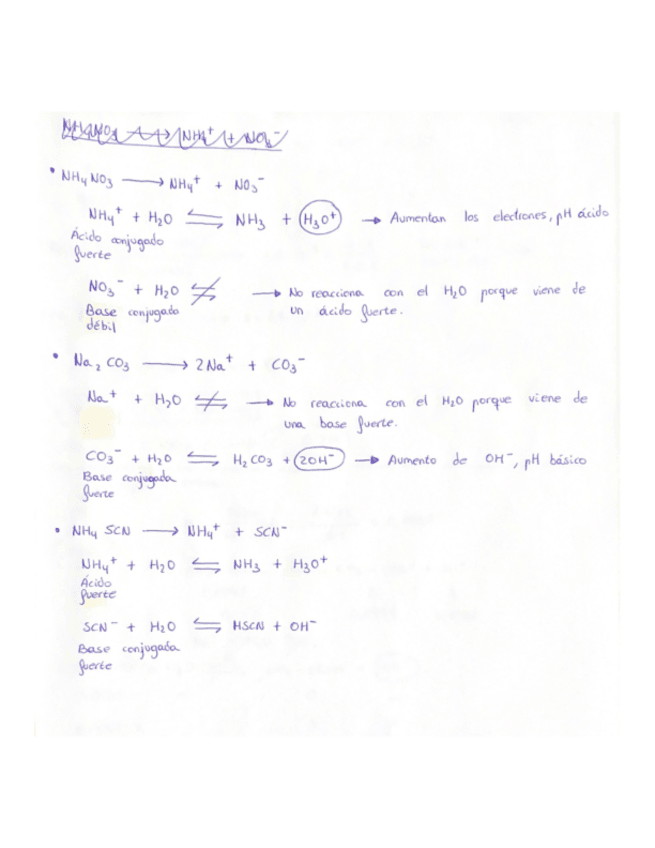 NH4NO3 → NH4+ + NO3-
• NH4NO3 → NH4+ + NO3-
NH4+ + H2O ⇌ NH3 + H3O+ → Aumentan los electrones, pH ácido
Ácido conjugado
fuerte
NO3- + H2O ⇌̸ → No reacciona con el H2O porque viene de
Base conjugada un ácido fuerte.
débil
• Na2CO3 → 2Na+ + CO3-
Na+ + H2O ⇌̸ → No reacciona con el H2O porque viene de
una base fuerte.
CO3- + H2O ⇌ H2CO3 + 2OH- → Aumento de OH-, pH básico
Base conjugada
fuerte
• NH4SCN → NH4+ + SCN-
NH4+ + H2O ⇌ NH3 + H3O+
Ácido
fuerte
SCN- + H2O ⇌ HSCN + OH-
Base conjugada
fuerte